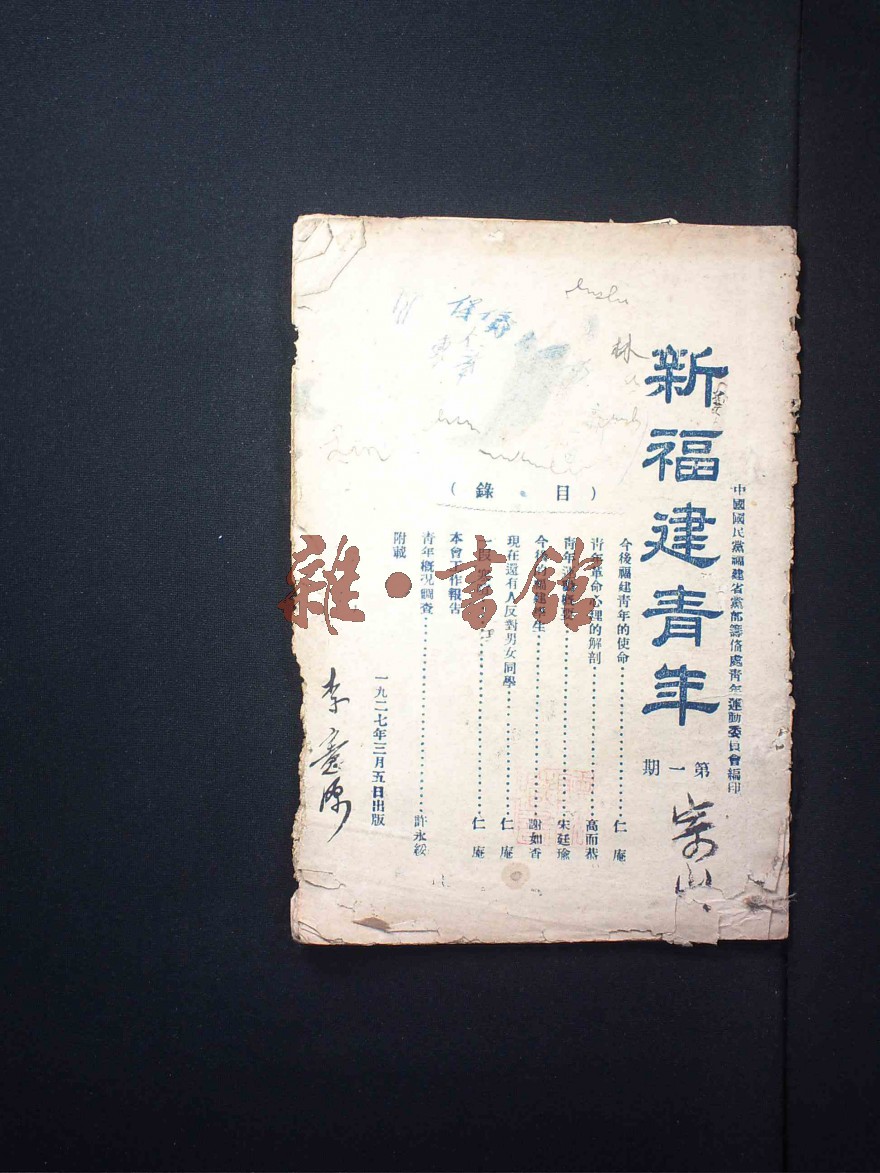 中國國民黨福建省黨部籌偹處青年運動委員會編印
新福建青年
第一期
（目錄）
今後福建青年的使命……仁庵
青年革命心理的解剖……高而恭
青年運動……宋廷瑜
今後的福建學生……謝如香
現在還有人反對男女同學……仁庵
一段……仁庵
本會工作報告
青年概況調查……許永綏
附載
一九二七年三月五日出版
李
林
雜·書館